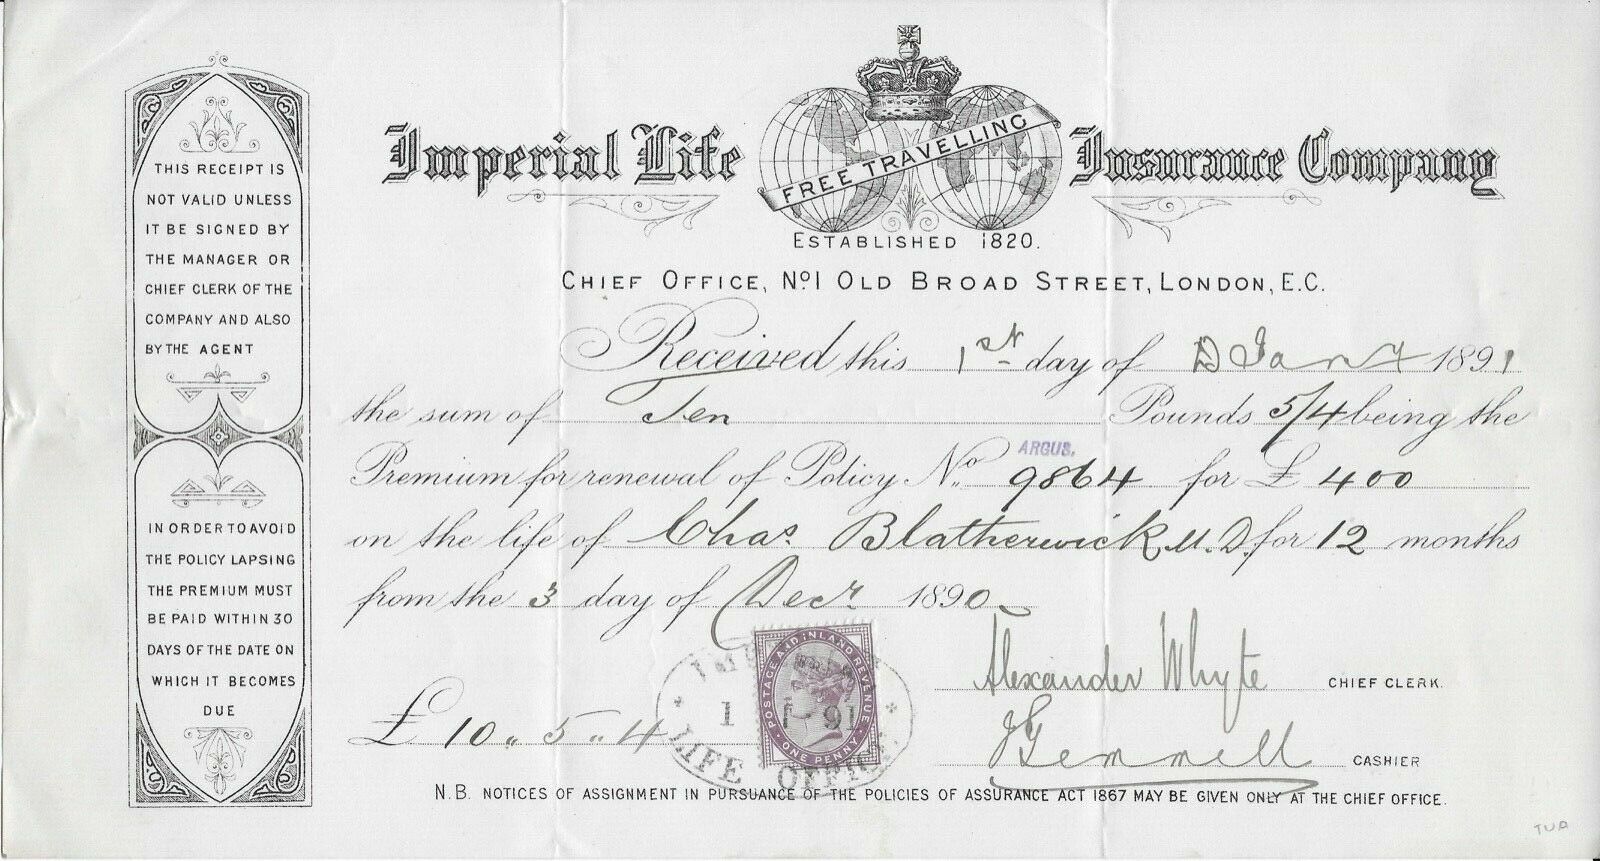 Imperial Life Insurance Company
FREE TRAVELLING
ESTABLISHED 1820.
CHIEF OFFICE, No 1 OLD BROAD STREET, LONDON, E.C.
THIS RECEIPT IS
NOT VALID UNLESS
IT BE SIGNED BY
THE MANAGER OR
CHIEF CLERK OF THE
COMPANY AND ALSO
BY THE AGENT
IN ORDER TO AVOID
THE POLICY LAPSING
THE PREMIUM MUST
BE PAID WITHIN 30
DAYS OF THE DATE ON
WHICH IT BECOMES
DUE
Received this 1st day of Jany 1891
the sum of Ten Pounds 5/4 being the
ARGUS.
Premium for renewal of Policy No. 9864 for £ 400
on the life of Chas. Blatherwick M.D. for 12 months
from the 3 day of Decr 1890
Alexander Whyte CHIEF CLERK.
£ 10 " 5 " 4
POSTAGE AND INLAND REVENUE
ONE PENNY
1 91
LIFE OFFICE
J Gemmell CASHIER
N.B. NOTICES OF ASSIGNMENT IN PURSUANCE OF THE POLICIES OF ASSURANCE ACT 1867 MAY BE GIVEN ONLY AT THE CHIEF OFFICE.
TUA